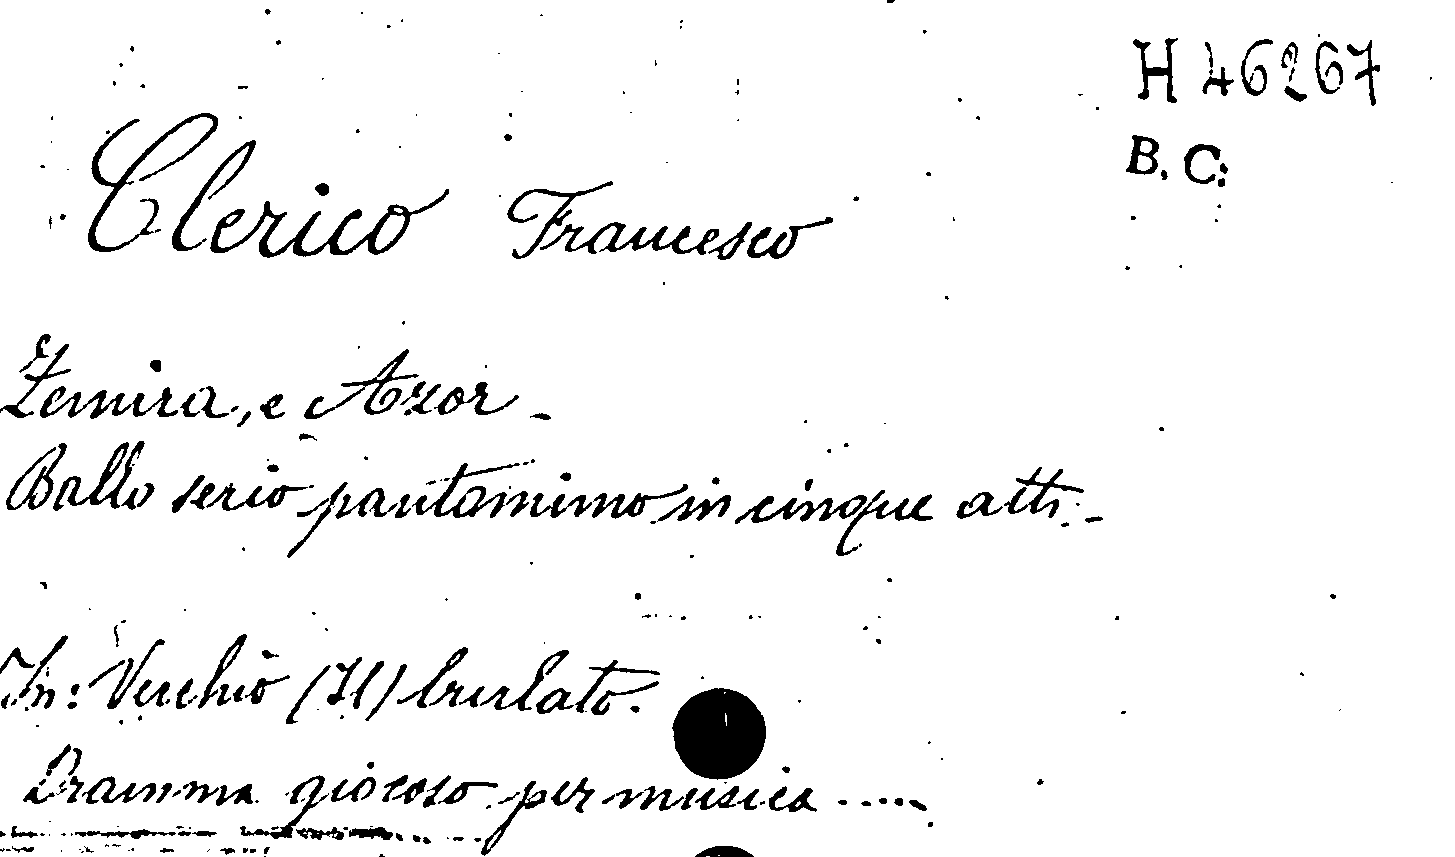 H 46267
B. C.
Clerico Francesco
Zemira, e Azor -
Ballo serio pantomimo in cinque atti. -
In: Vecchio (Il) burlato.
Dramma giocoso per musica .....